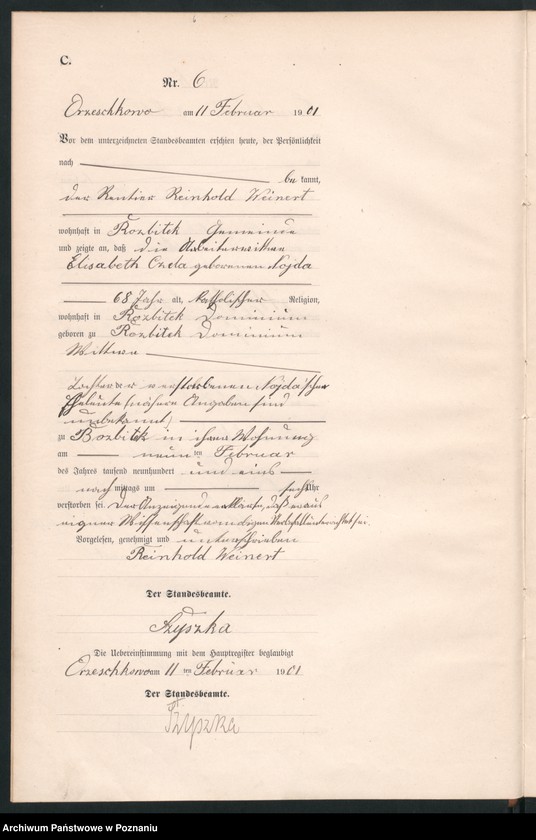 C.
Nr. 6
Orzeschkowo am 11 Februar 1901
Vor dem unterzeichneten Standesbeamten erschien heute, der Persönlichkeit
nach
be kannt,
der Rentier Reinhold Weinert
wohnhaft in Rozbitek Gemeinde
und zeigte an, daß die Arbeiterwittwe
Elisabeth Czela geborenen Nojda
68 Jahr alt, katholischer Religion,
wohnhaft in Rozbitek Dominium
geboren zu Rozbitek Dominium
Wittwe
Tochter der verstorbenen Nojda'schen
Eheleute (nähere Angaben sind
unbekannt)
zu Rozbitek in ihrer Wohnung
am neun ten Februar
des Jahres tausend neunhundert und eins
nach mittags um sechs Uhr
verstorben sei. Der Anzeigende erklärte, daß er aus
eigner Wissenschaft von diesem Sterbefall unterrichtet sei.
Vorgelesen, genehmigt und unterschrieben
Reinhold Weinert
Der Standesbeamte.
Szyszka
Die Uebereinstimmung mit dem Hauptregister beglaubigt
Orzeschkowo am 11 ten Februar 1901
Der Standesbeamte.
Szyszka
Archiwum Państwowe w Poznaniu